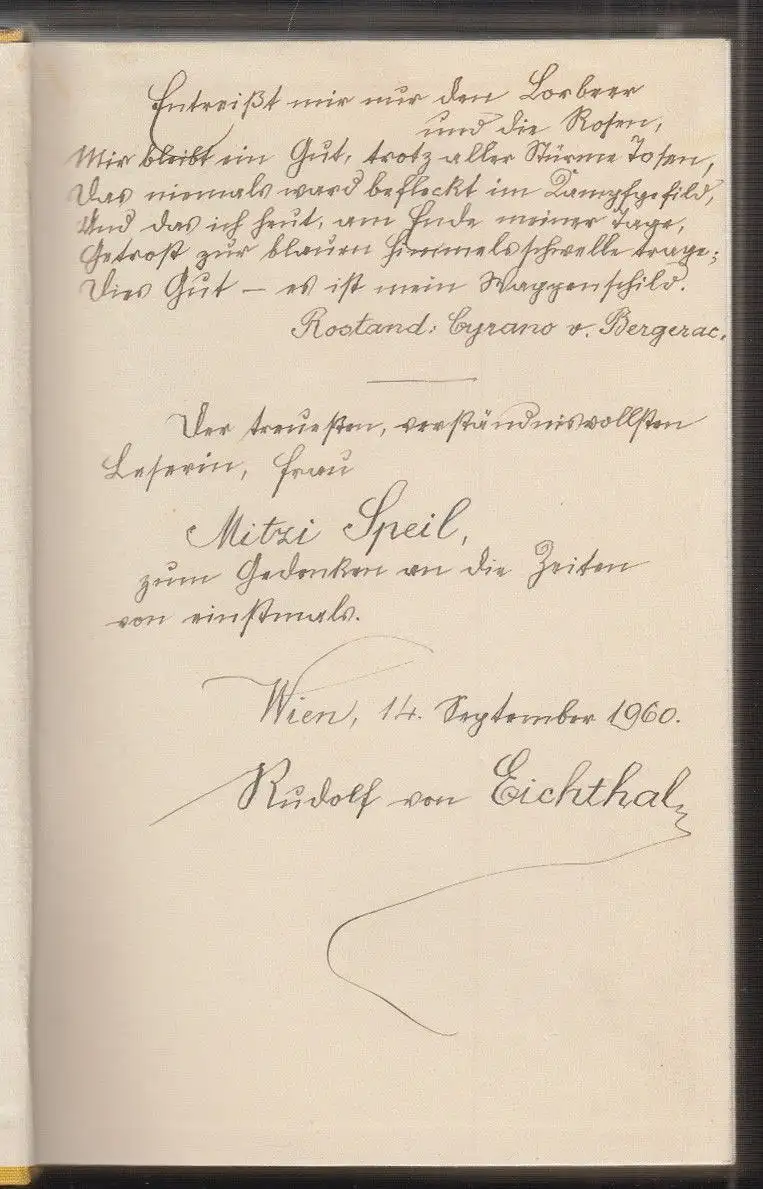 Entreißt mir nur den Lorbeer
und die Rosen,
Mir bleibt ein Gut, trotz aller Stürme Tosen,
Das niemals ward befleckt im Kampfgefild,
Und das ich heut, am Ende meiner Tage,
Getrost zur blauen Himmelsschwelle trage:
Dies Gut – es ist mein Wappenschild.
Rostand: Cyrano v. Bergerac.
Der treuesten, verständnisvollsten
Leserin, Frau
Mitzi Speil,
zum Gedenken an die Zeiten
von einstmals.
Wien, 14. September 1960.
Rudolf von Eichthal